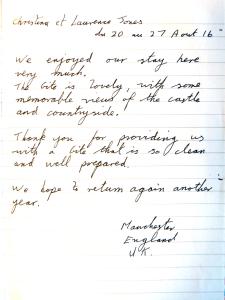 Christina et Laurence Jones
du 20 au 27 Aout 16
We enjoyed our stay here
very much.
The Gite is lovely, with some
memorable views of the castle
and countryside.
Thank you for providing us
with a Gite that is so clean
and well prepared.
We hope to return again another
year.
Manchester
England
U.K.